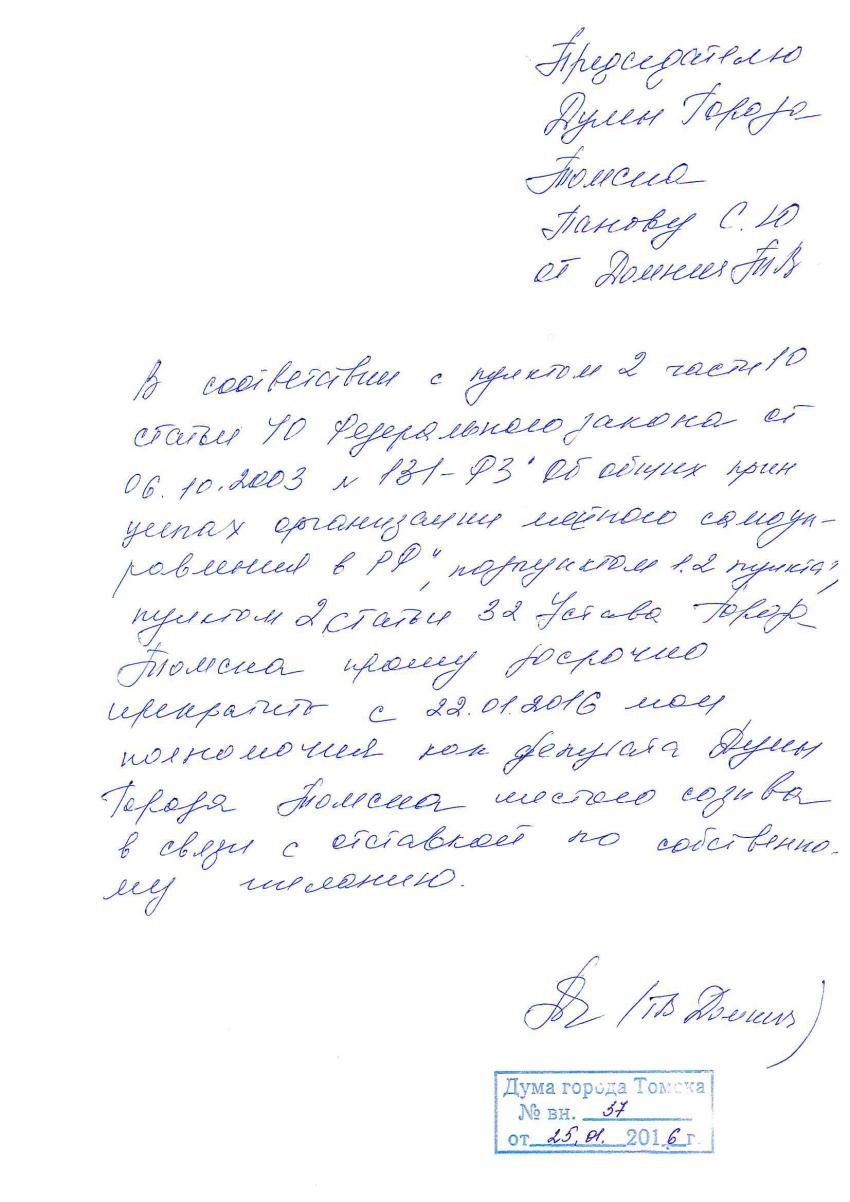 Председателю
Думы Города
Томска
Панову С.Ю
от Домнич ТВ
В соответствии с пунктом 2 части 10
статьи 40 Федерального закона от
06.10.2003 N 131-ФЗ "Об общих прин
ципах организации местного самоуп-
равления в РФ", подпунктом 1.2 пункта 1,
пунктом 2 статьи 32 Устава Города
Томска прошу досрочно
прекратить с 22.01.2016 мои
полномочия как депутата Думы
Города Томска шестого созыва
в связи с отставкой по собственно-
му желанию.
/ТВ Домнич)
Дума города Томска
№ вн. 37
от 25.01. 2016 г.